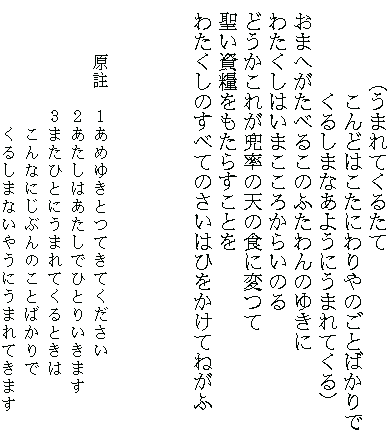 (うまれてくるたて
こんどはこたにわりやのごとばかりで
くるしまなあようにうまれてくる)
おまへがたべるこのふたわんのゆきに
わたくしはいまこころからいのる
どうかこれが兜率の天の食に変つて
聖い資糧をもたらすことを
わたくしのすべてのさいはひをかけてねがふ
原註　1あめゆきとつてきてください
2あたしはあたしでひとりいきます
3またひとにうまれてくるときは
こんなにじぶんのことばかりで
くるしまないやうにうまれてきます